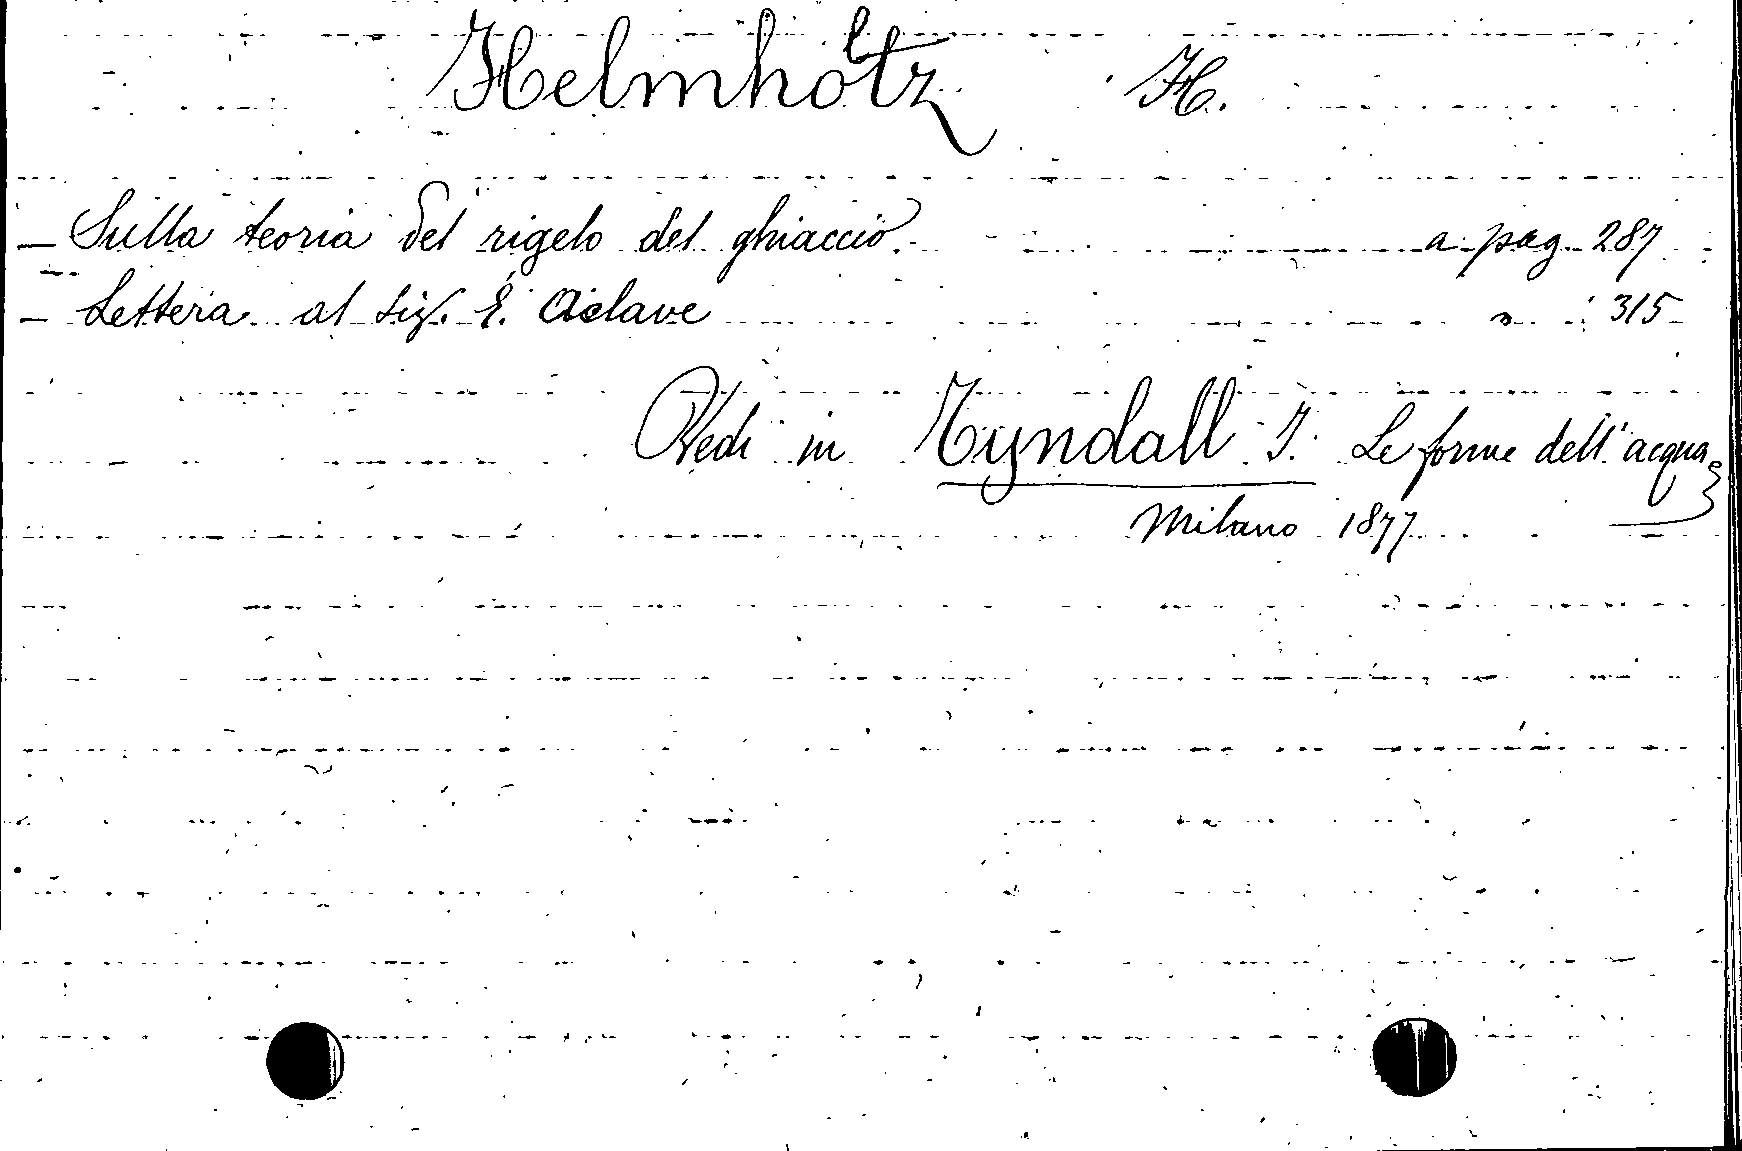 Helmholtz H.
— Sulla teoria del rigelo del ghiaccio. a pag. 287
— Lettera al sig. E. Aclave " 315
Vedi in Tyndall J. Le forme dell'acqua
Milano 1877